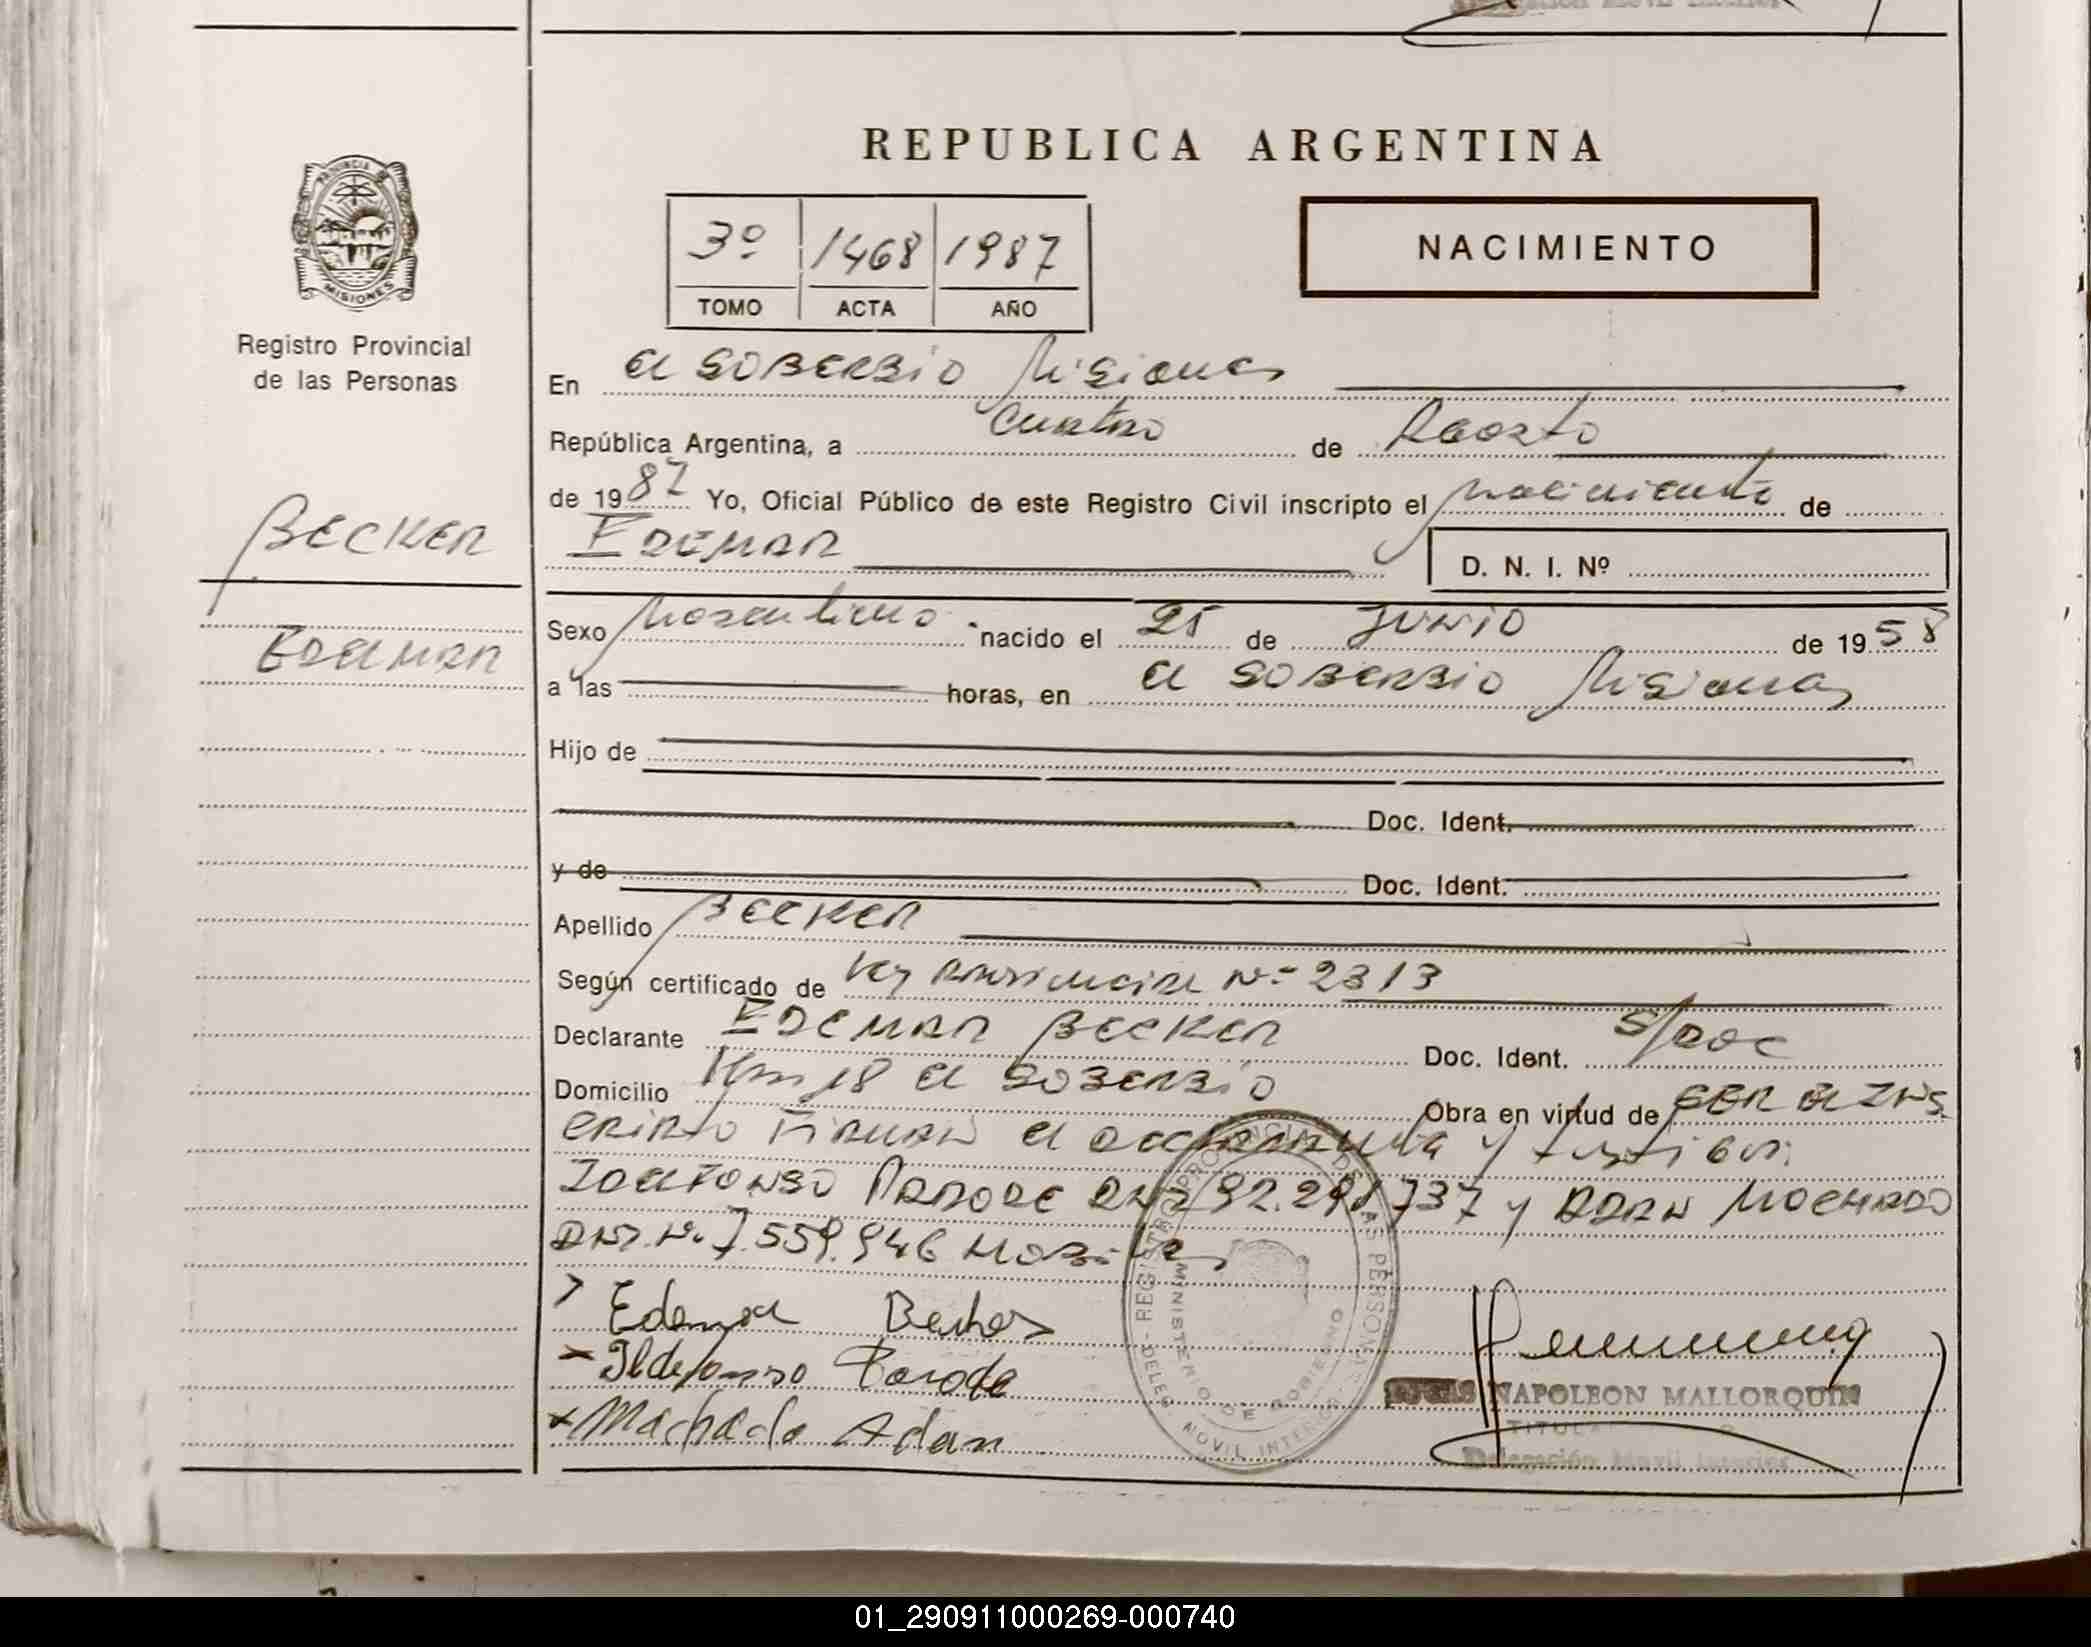 REPUBLICA ARGENTINA
PROVINCIA DE
MISIONES
Registro Provincial
de las Personas
3º 1468 1987
TOMO ACTA AÑO
NACIMIENTO
En El SOBERBIO Misiones
República Argentina, a Cuatro de Agosto
de 1987 Yo, Oficial Público de este Registro Civil inscripto el nacimiento de
EDEMAR
D. N. I. Nº
BECKER
EDEMAR
Sexo Masculino nacido el 25 de JUNIO de 1958
a las horas, en El SOBERBIO Misiones
Hijo de
Doc. Ident.
y de Doc. Ident.
Apellido BECKER
Según certificado de Ley PROVINCIAL Nº 2313
Declarante EDEMAR BECKER Doc. Ident. S/DOC
Domicilio Km 18 El SOBERBIO Obra en virtud de SER El INS
CRIPTO FIRMAN El DECLARANTE y testigos:
ILDEFONSO PARODE DNI 92.291737 y ADAN MOCHADO
DNI. Nº 7.559.946
Edemar Becker
Ildefonso Parode
Machado Adan
REGISTRO PROVINCIAL DE LAS PERSONAS
MINISTERIO DE GOBIERNO
DELEG. MOVIL INTERIOR
NAPOLEON MALLORQUIN
TITULAR
Delegación Movil Interior
01_290911000269-000740